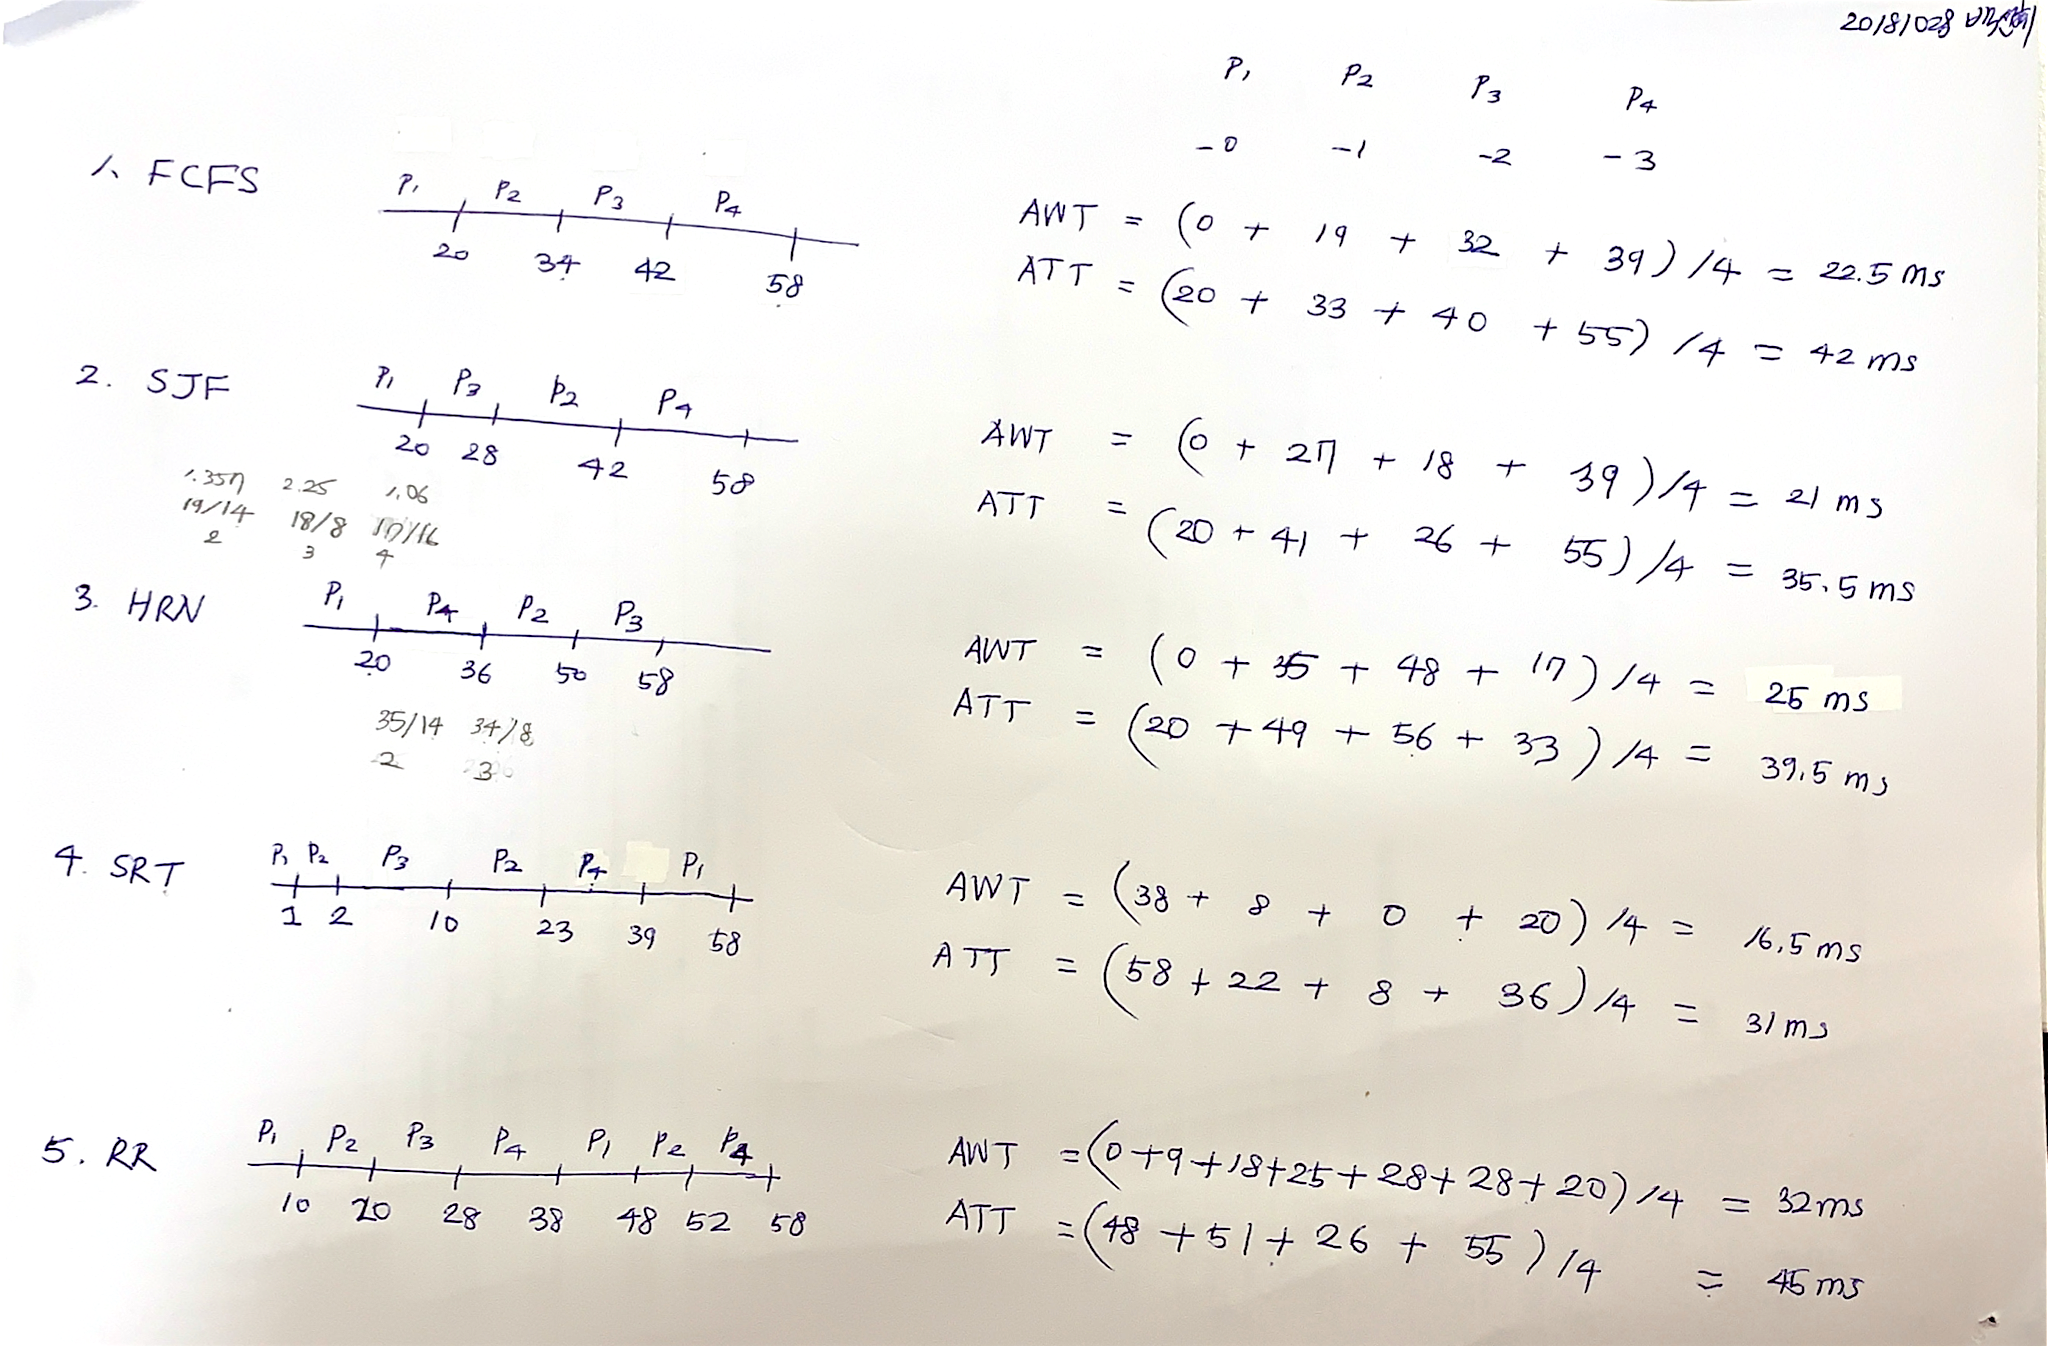 20181028
P1 P2 P3 P4
-0 -1 -2 -3
1. FCFS
P1 P2 P3 P4
20 34 42 58
AWT = (0 + 19 + 32 + 39) /4 = 22.5 ms
ATT = (20 + 33 + 40 + 55) /4 = 42 ms
2. SJF
P1 P3 P2 P4
20 28 42 58
AWT = (0 + 27 + 18 + 39) /4 = 21 ms
ATT = (20 + 41 + 26 + 55) /4 = 35.5 ms
1.357 2.25 1.06
19/14 18/8 17/16
2 3 4
3. HRN
P1 P4 P2 P3
20 36 50 58
35/14 34/8
2 3
AWT = (0 + 35 + 48 + 17) /4 = 25 ms
ATT = (20 + 49 + 56 + 33) /4 = 39.5 ms
4. SRT
P1 P2 P3 P2 P4 P1
1 2 10 23 39 58
AWT = (38 + 8 + 0 + 20) /4 = 16.5 ms
ATT = (58 + 22 + 8 + 36) /4 = 31 ms
5. RR
P1 P2 P3 P4 P1 P2 P4
10 20 28 38 48 52 58
AWT = (0+9+18+25+28+28+20) /4 = 32ms
ATT = (48 + 51 + 26 + 55) /4 = 45 ms